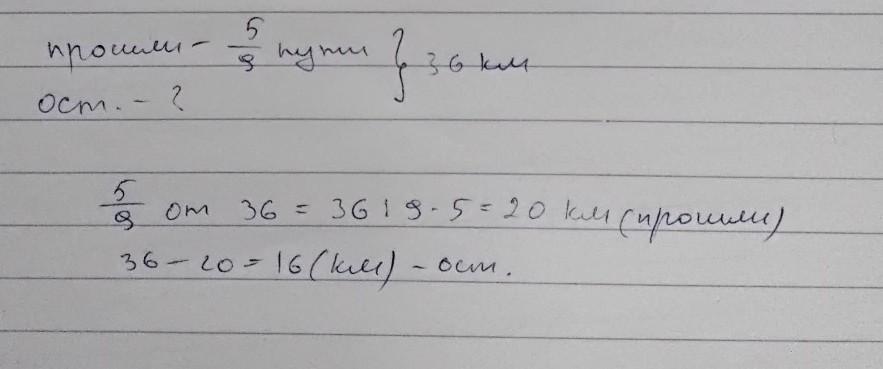 прошли - 5/9 пути } 36 км
ост. - ?
5/9 от 36 = 36 : 9 · 5 = 20 км (прошли)
36 - 20 = 16 (км) - ост.